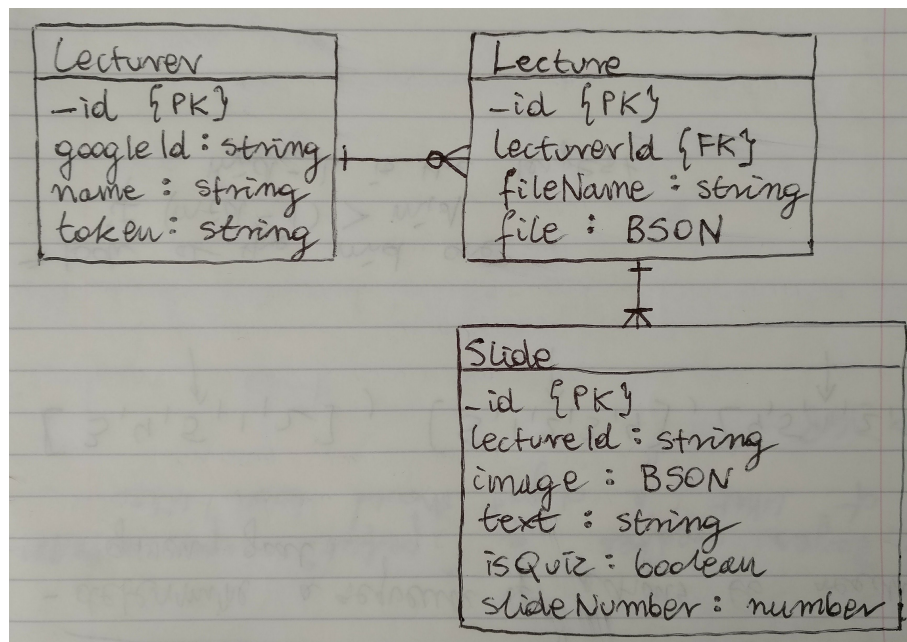 Lecturer
_id {PK}
googleId : string
name : string
token : string
Lecture
_id {PK}
lecturerId {FK}
fileName : string
file : BSON
Slide
_id {PK}
lectureId : string
image : BSON
text : string
isQuiz : boolean
slideNumber : number